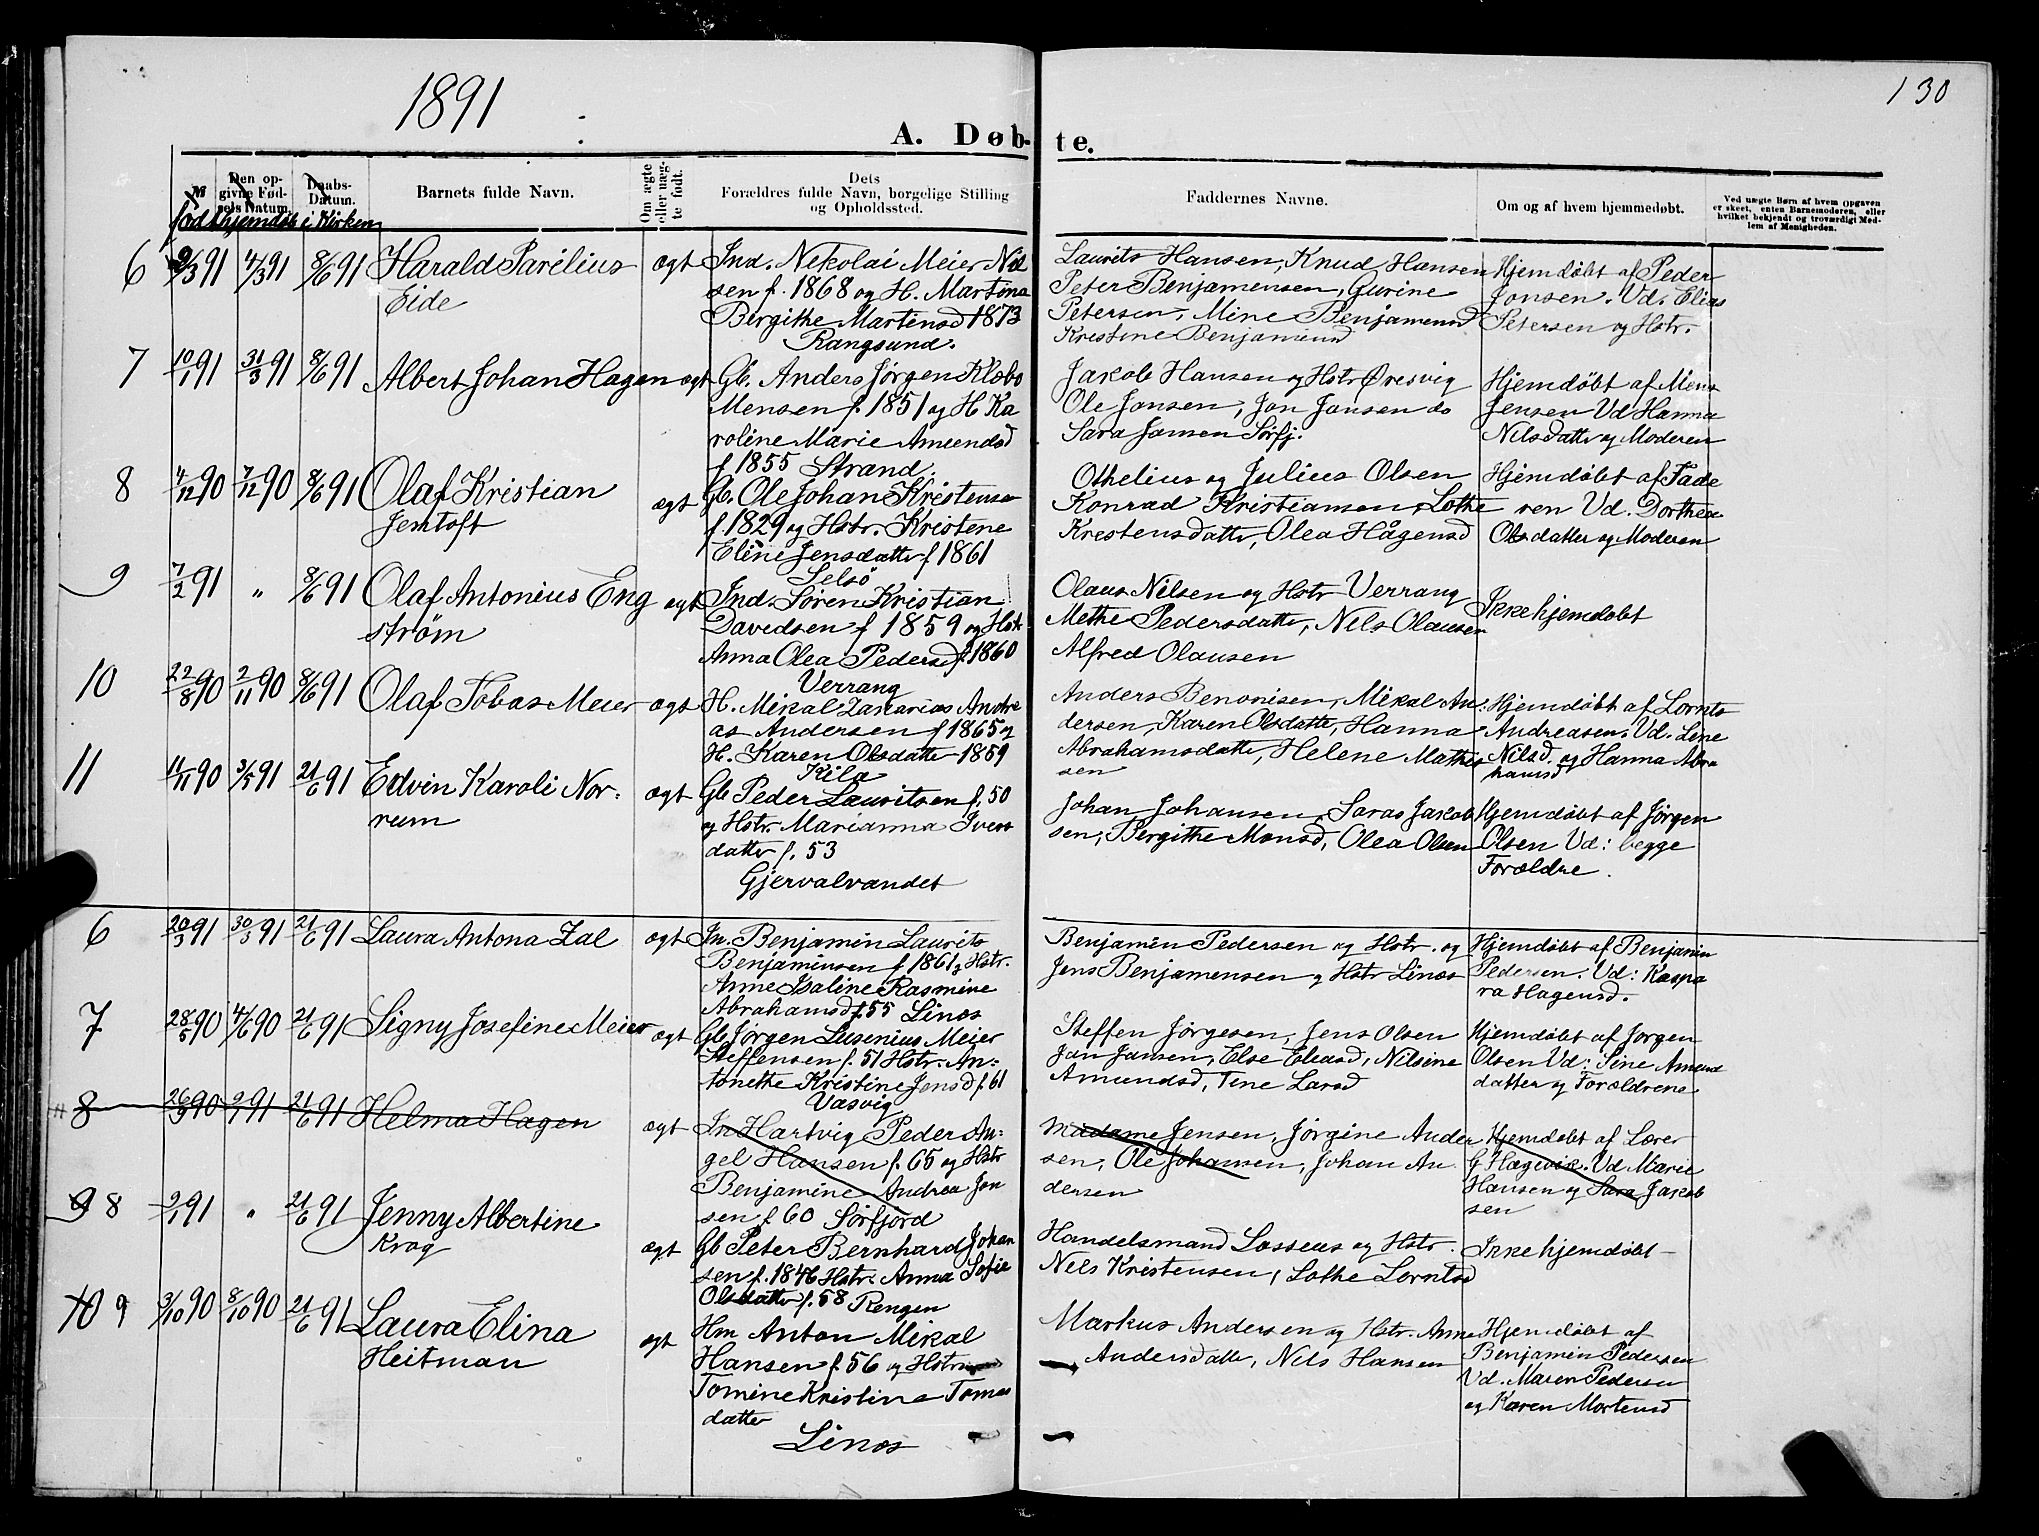 1891
130
A. Døb-
te.
№
Den op-
givne Fød-
sels Datum.
Daabs-
Datum.
Barnets fulde Navn.
Om ægte
eller uæg-
te født.
Dets
Forældres fulde Navn, borgelige Stilling
og Opholdssted.
Faddernes Navne.
Om og af hvem hjemmedøbt.
Ved uægte Børn af hvem Opgaven
er skeet, enten Barnemoderen, eller
hvilket bekjendt og troværdigt Med-
lem af Menigheden.
født hjemdøbt i Kirken
6 2/3 91 4/3 91 8/6 91 Harald Parelius
Eide
ægt
Ind. Nikolai Meier Nil
sen f. 1868 og H. Martina
Bergithe Martinsd 1873
Rangsund.
Laurits Hansen, Knud Hansen
Peter Benjamensen, Gurine
Petersen, Mine Benjamensd
Kristine Benjamensd
Hjemdøbt af Peder
Jonsen. Vd. Elias
Petersen og Hstr.
7 10/1 91 31/3 91 8/6 91 Albert Johan Hagen ægt
Gb. Anders Jørgen Klæbo
Mensen f. 1851 og H. Ka
roline Marie Amundsd
f 1855 Strand.
Jakob Hansen og Hstr Øresvig
Ole Jonsen, Jon Jonsen do
Sara Jonsen Sørfj.
Hjemdøbt af Mens
Jensen Vd Hanna
Nilsdatter og Moderen
8 4/12 90 7/12 90 8/6 91 Olaf Kristian
Jemtoft
ægt
Gb. Ole Johan Kristensen
f 1829 og Hstr. Kristene
Eline Jensdatter f 1861
Selsö
Othelius og Julius Olsen
Konrad Kristiansen, Lothe
Krestensdatter, Olea Hågensd
Hjemdøbt af Fade
ren Vd. Dorthea
Olsdatter og Moderen
9 7/2 91 " 8/6 91 Olaf Antonius Eng
strøm
ægt
Ind. Søren Kristian
Davidsen f 1859 og Hstr
Anna Olea Pedersd f. 1860
Verrang
Olaus Nilsen og Hstr Verrang
Methe Pedersdatter, Nils Olausen
Alfred Olausen
Ikke hjemdøbt
10 22/8 90 2/11 90 8/6 91 Olaf Tobas Meier ægt
H. Mikal Zakarias Andre
as Andersen f 1865 og
H. Karen Olsdatter 1859
Kila
Anders Benonisen, Mikal An
dersen, Karen Olsdatter, Hanna
Abrahamsdatter, Helene Mathis
sen
Hjemdøbt af Lornts
Andreasen. Vd. Lene
Nilsd. og Hanna Abra
hamsd
11 11/11 90 3/5 91 21/6 91 Edvin Karoli Nor-
rum
ægt
Gb Peder Lauritsen f. 50
og Hstr. Marianna Ivers
datter f. 53
Gjervalvandet
Johan Johansen, Saras Jakob
sen, Bergithe Monsd, Olea Olsen
Hjemdøbt af Jørgen
Olsen Vd: begge
Forældre.
6 20/3 91 30/3 91 21/6 91 Laura Antona Zal ægt
In. Benjamin Laurits
Benjaminsen f 1861 og Hstr.
Anne Isaline Rasmine
Abrahamsd f. 55 Linæs
Benjamin Pedersen og Hstr. og
Jens Benjamensen og Hstr Linæs
Hjemdøbt af Benjamin
Pedersen. Vd: Kaspa
ra Hagensd.
7 28/5 90 4/6 90 21/6 91 Signy Josefine Meier ægt
Gb Jørgen Lusenius Meier
Steffensen f. 51 Hstr. An-
tonette Kristine Jensd f. 61
Vasvig
Steffen Jørgesen, Jens Olsen
Jon Jonsen, Else Eleasd, Nilsine
Amundsd, Tine Larsd
Hjemdøbt af Jørgen
Olsen Vd: Sine Amund
datter og Forældrene
8 90 2/1 91 21/6 91 Helma Hagen ægt
In Hartvig Peder An-
gel Hansen f. 65 og Hstr
Benjamine Andrea Jon
sen f. 60 Sørfjord
Madame Jensen, Jørgine Ander
sen, Ole Johansen, Johan An
dersen
Hjemdøbt af Lærer
G Hagevik. Vd Marie
Hansen og Sara Jakob
sen
9 8 2/1 91 " 21/6 91 Jenny Albertine
Krog
ægt
Gb Peter Bernhard Johan
sen f. 1846 Hstr. Anna Sofie
Olsdatter f. 58 Rengen
Handelsmand Lossius og Hstr.
Nels Kristensen, Lothe Lorntsd
Ikke hjemdøbt
10 9 3/10 90 8/10 90 21/6 91 Laura Elina
Heitman
ægt
Hm Anton Mikal
Hansen f. 56 og Hstr
Tomine Kristine Tomas
datter
Linæs
Markus Andersen og Hstr. Anne
Andersdatter, Nils Hansen
Hjemdøbt af
Benjamin Pedersen
Vd. Maren Pedersen
og Karen Mortensd